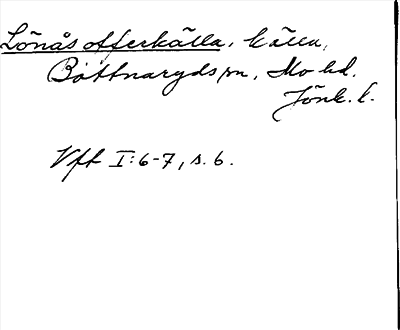 Lönås offerkälla, källa,
Bottnaryds sn, Mo hd.
Jönk. l.
Vft I:6-7, s. 6.